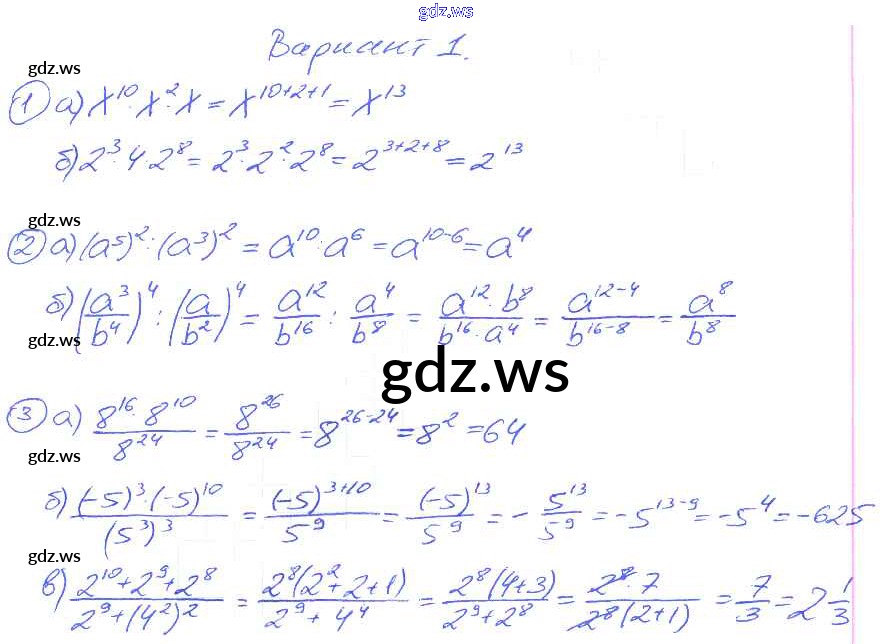 gdz.ws
Вариант 1.
gdz.ws
① а) x¹⁰·x²·x = x¹⁰⁺²⁺¹ = x¹³
б) 2³·4·2⁸ = 2³·2²·2⁸ = 2³⁺²⁺⁸ = 2¹³
gdz.ws
② а) (a⁵)²:(a³)² = a¹⁰:a⁶ = a¹⁰⁻⁶ = a⁴
б) (a³/b⁴)⁴ : (a/b²)⁴ = a¹²/b¹⁶ : a⁴/b⁸ = a¹²·b⁸/b¹⁶·a⁴ = a¹²⁻⁴/b¹⁶⁻⁸ = a⁸/b⁸
gdz.ws
gdz.ws
③ а) 8¹⁶·8¹⁰/8²⁴ = 8²⁶/8²⁴ = 8²⁶⁻²⁴ = 8² = 64
gdz.ws
б) (-5)³·(-5)¹⁰/(5³)³ = (-5)³⁺¹⁰/5⁹ = (-5)¹³/5⁹ = - 5¹³/5⁹ = -5¹³⁻⁹ = -5⁴ = -625
gdz.ws
в) 2¹⁰+2⁹+2⁸/2⁹+(4²)² = 2⁸(2²+2+1)/2⁹+4⁴ = 2⁸(4+3)/2⁹+2⁸ = 2⁸·7/2⁸(2+1) = 7/3 = 2 1/3